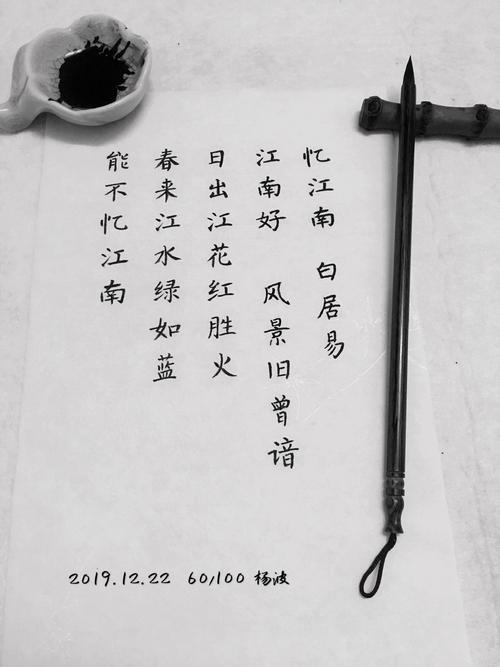 忆江南 白居易
江南好 风景旧曾谙
日出江花红胜火
春来江水绿如蓝
能不忆江南
2019.12.22 60/100 杨波